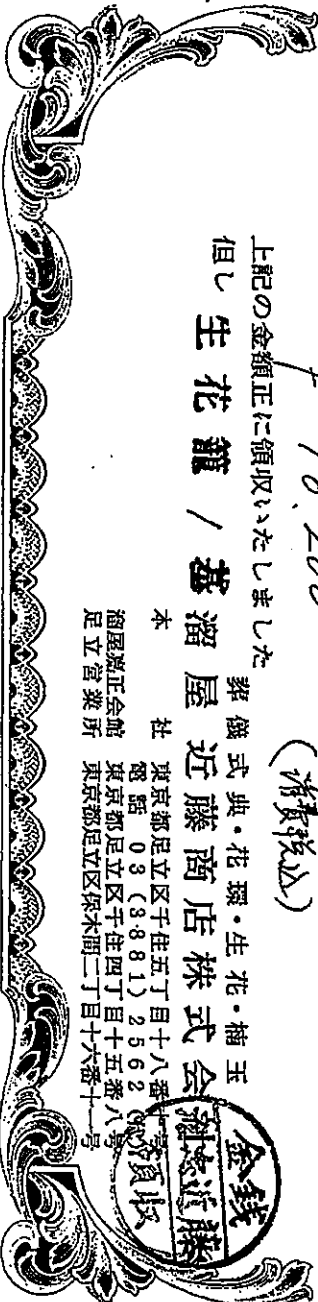 (消費税込)
上記の金額正に領収いたしました
但し 生花籠 / 基
葬儀式典・花環・生花・楠玉
溜屋近藤商店株式会社
本 社 東京都足立区千住五丁目十八番
電話 03(3881)2562
溜屋激正会館 東京都足立区千住四丁目十五番八号
足立営業所 東京都足立区保木間二丁目十六番十一号
金銭
領収